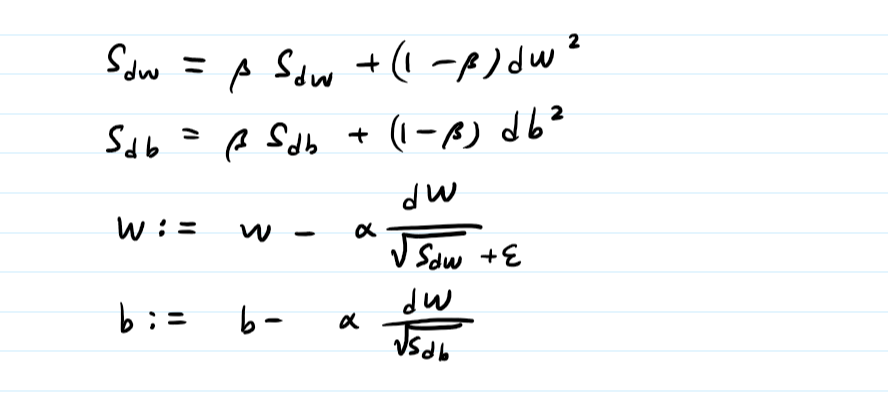 S_dw = β S_dw + (1 - β) dw²
S_db = β S_db + (1 - β) db²
w := w - α dw / (√S_dw + ε)
b := b - α dw / √S_db